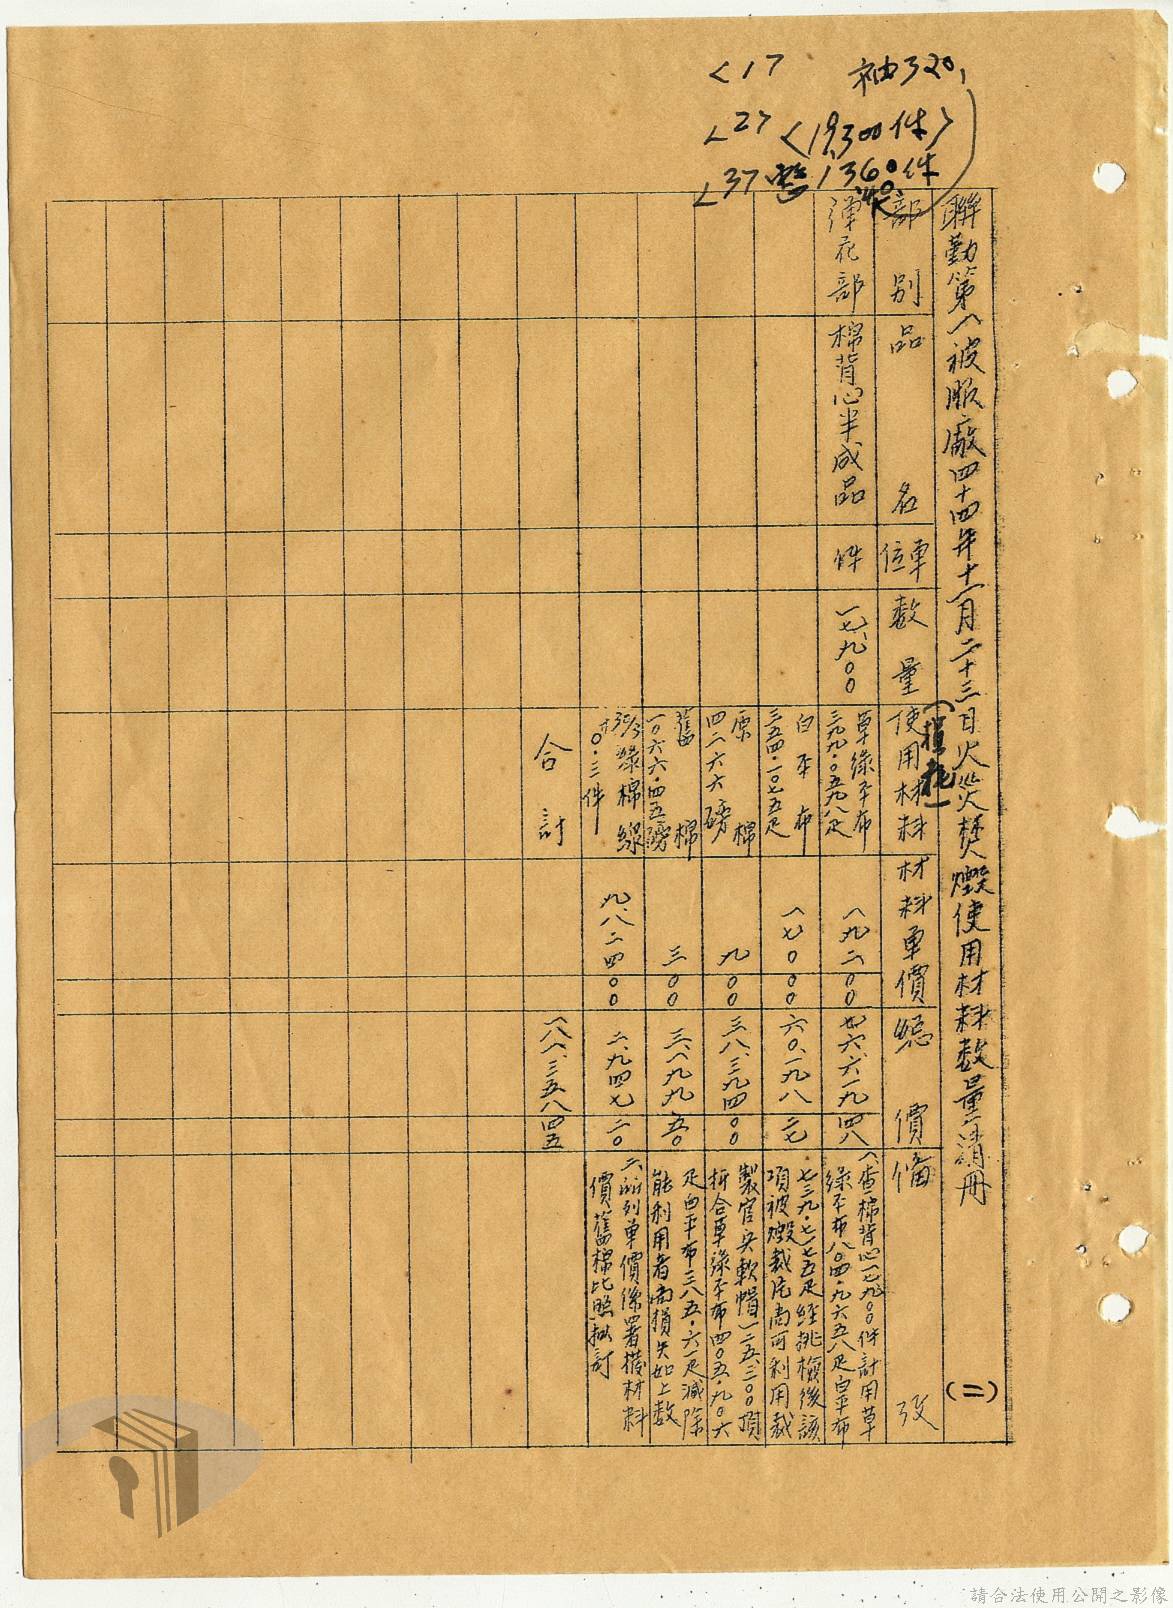 <17
袖320,
<27 <19,300件>
<37 整1,360件
聯勤第八被服廠四十四年十一月二十三日火災焚燬使用材料數量清冊 (二)
(棉花)
部別
品名
單位
數量
使用材料
材料單價
總價
備攷
彈花部
棉背心半成品
件
一七、九〇〇
草綠平布
三九九・〇五九八疋
一八九二〇〇
白平布
三五四・一〇七五疋
一七〇〇〇
六〇、一九八二七
原棉
四二六六磅
九〇〇
三八、三九四〇〇
舊棉
一〇六六・四五磅
三〇〇
三、一九九五〇
30/3綠棉線
〇・三件
九、八二四〇〇
二、九四七二〇
合計
一八一、三五八四五
一、查棉背心一七九〇〇件計用草
綠平布八〇四・九六五八疋白平布
七三九・七一七五疋經挑檢後該
項被燬裁片尚可利用裁
製官兵軟帽一二五、二〇〇頂
折合草綠平布四〇五・九〇六
疋白平布三八五・六一疋減除
能利用者尚損失如上數
二、所列單價係署撥材料
價舊棉比照拟訂
請合法使用公開之影像